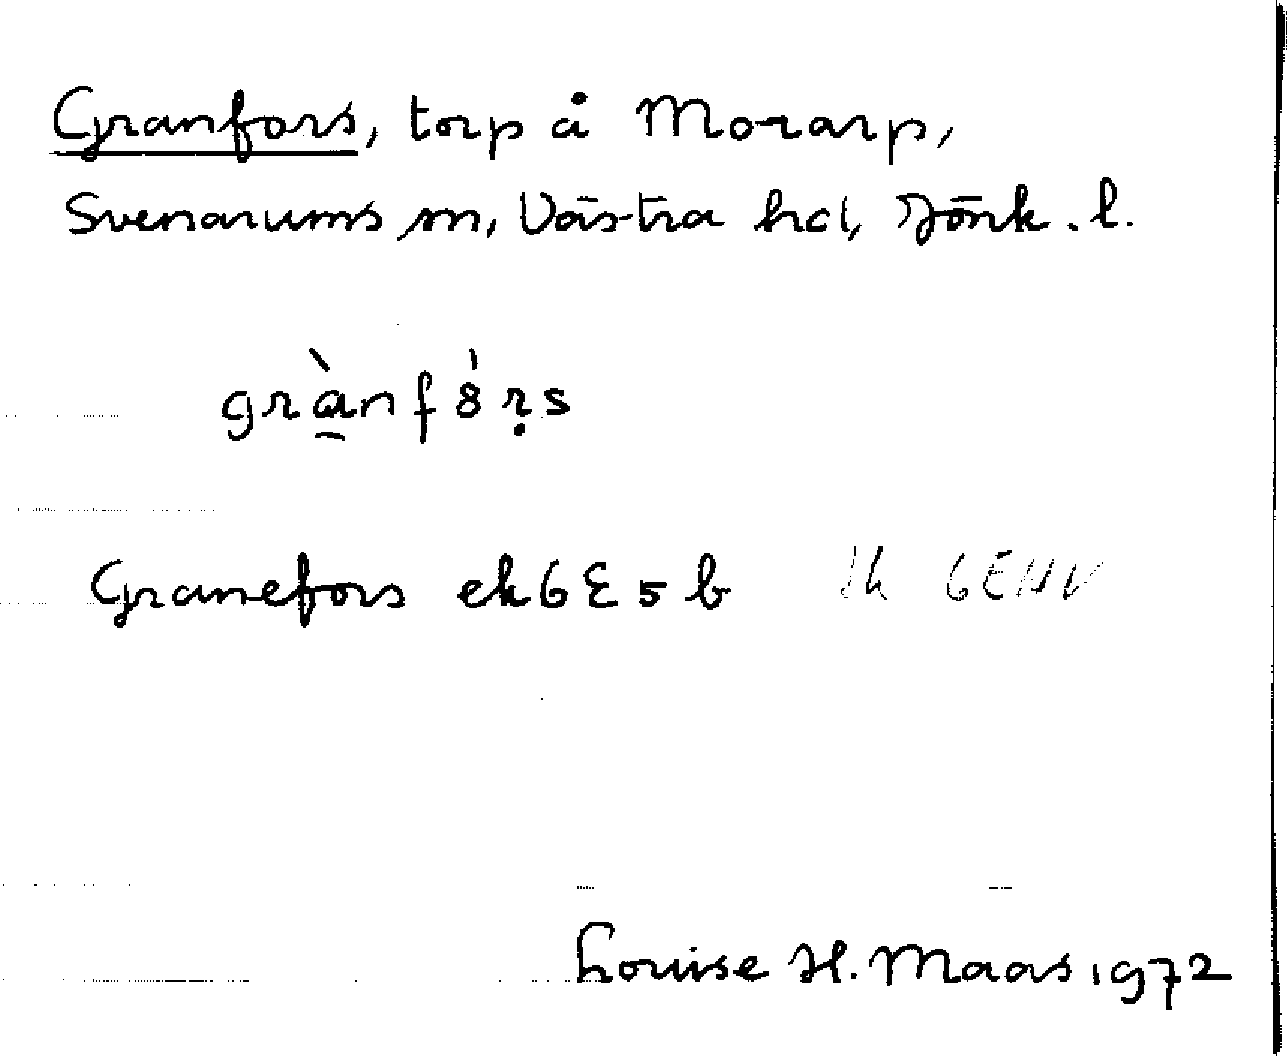 Granfors, torp å Morarp,
Svenarums sn, Västra hd, Jönk. l.
grànfȯ́r̩s
Granefors ek 6E5b
Louise H. Maas 1972